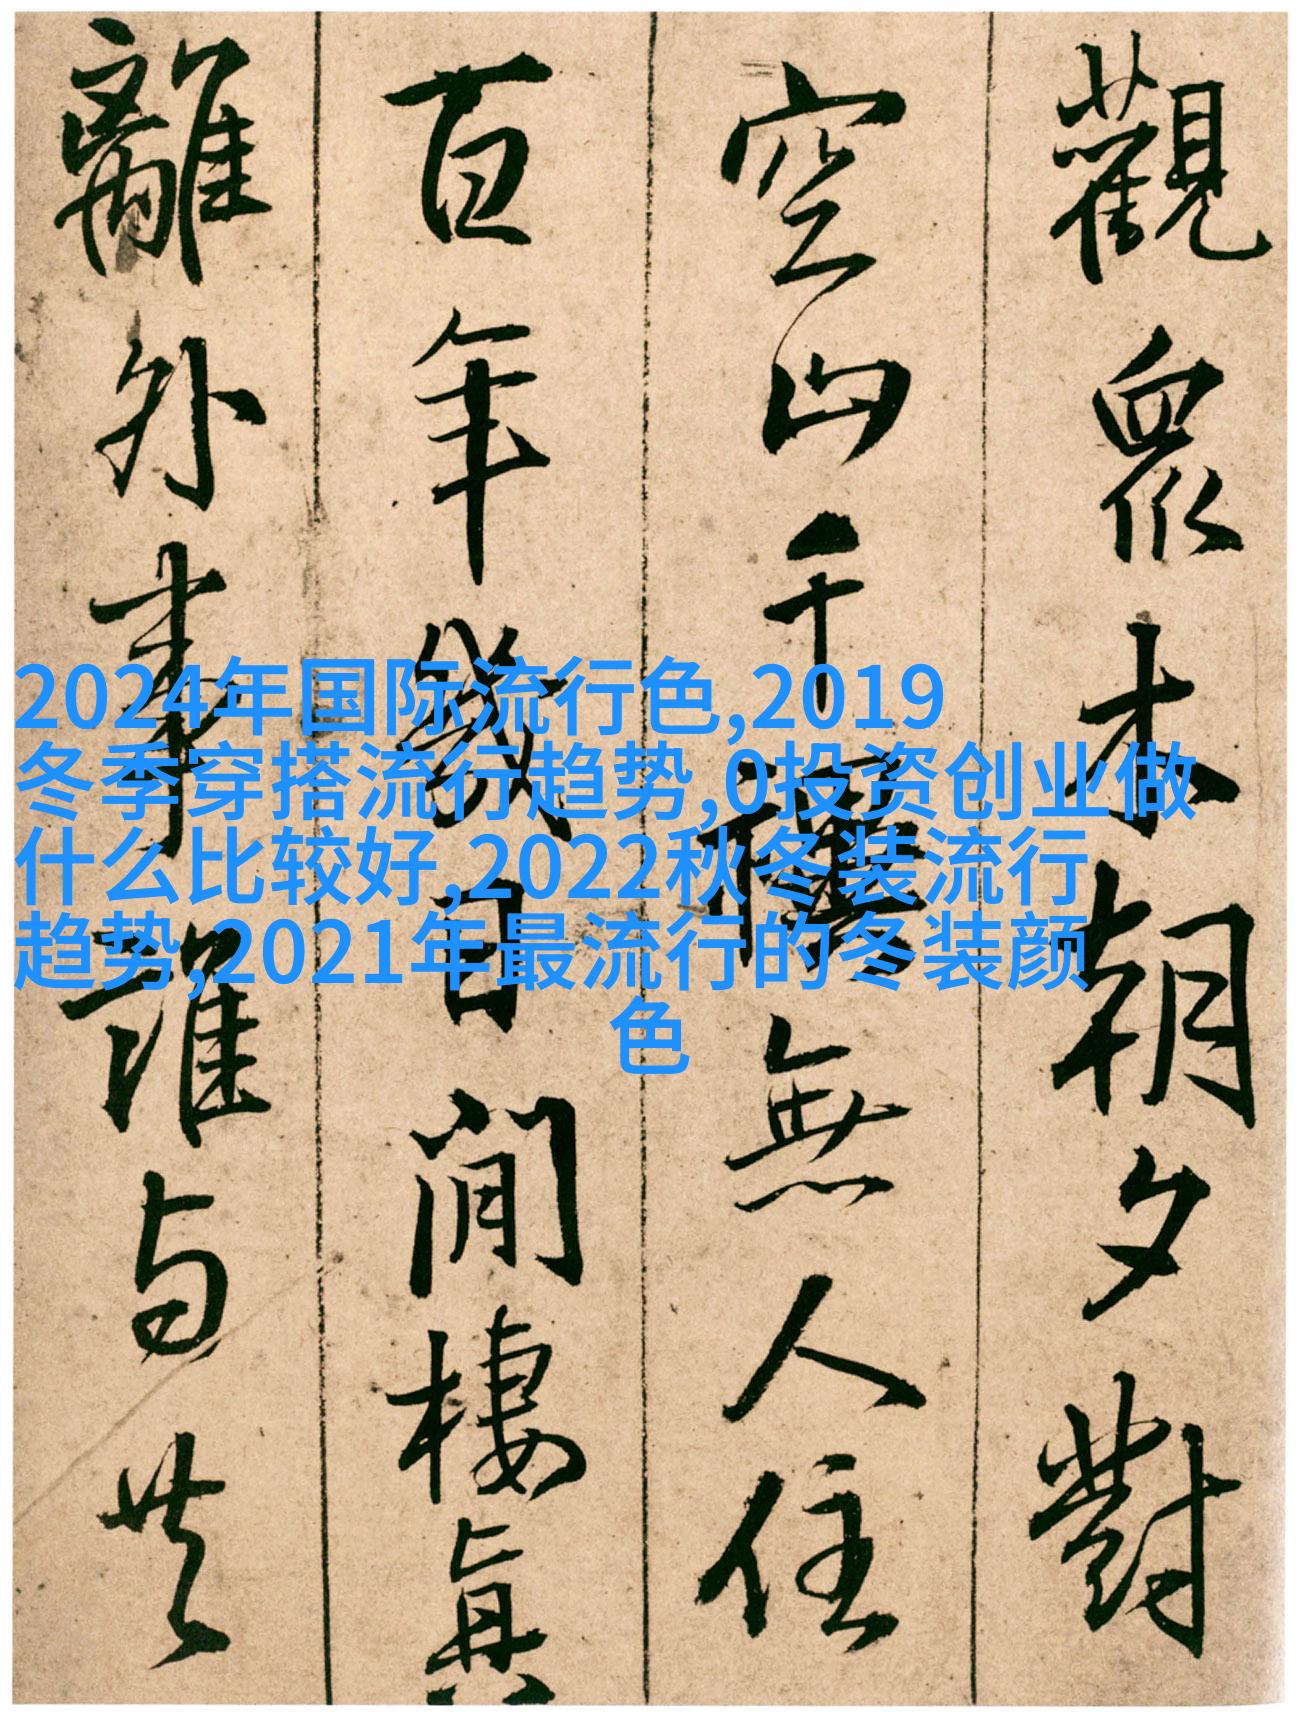 觀眾木朝夕對
空山千橿無人住
百年幾日閒棲真
離外事誰与共
2024年国际流行色,2019
冬季穿搭流行趋势,0投资创业做
什么比较好,2022秋冬装流行
趋势,2021年最流行的冬装颜
色